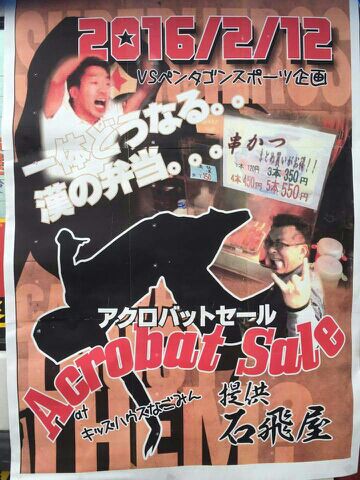 2016/2/12
VSペンタゴンスポーツ企画
一体どうなる。。
漢の弁当。。。
串かつ
まとめ買いがお得!!
1本170円 3本350円
4本450円 5本550円
アクロバットセール
Acrobat Sale
at
キッズハウスなごみん
提供
石飛屋
THEM?